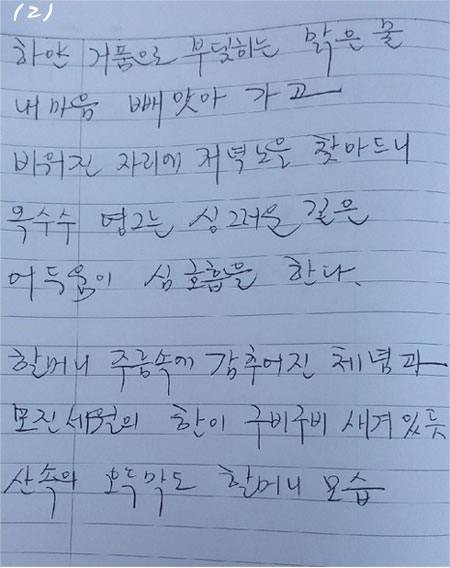 (2)
하얀 거품으로 부딪히는 맑은 물
내마음 빼앗아 가고
비워진 자리에 저녁노을 찾아드니
옥수수 영그는 싱그러운 깊은
어두움이 심호흡을 한다.
할머니 주름속에 감추어진 체념과
모진세월의 한이 구비구비 새겨있듯
산속의 오두막도 할머니 모습